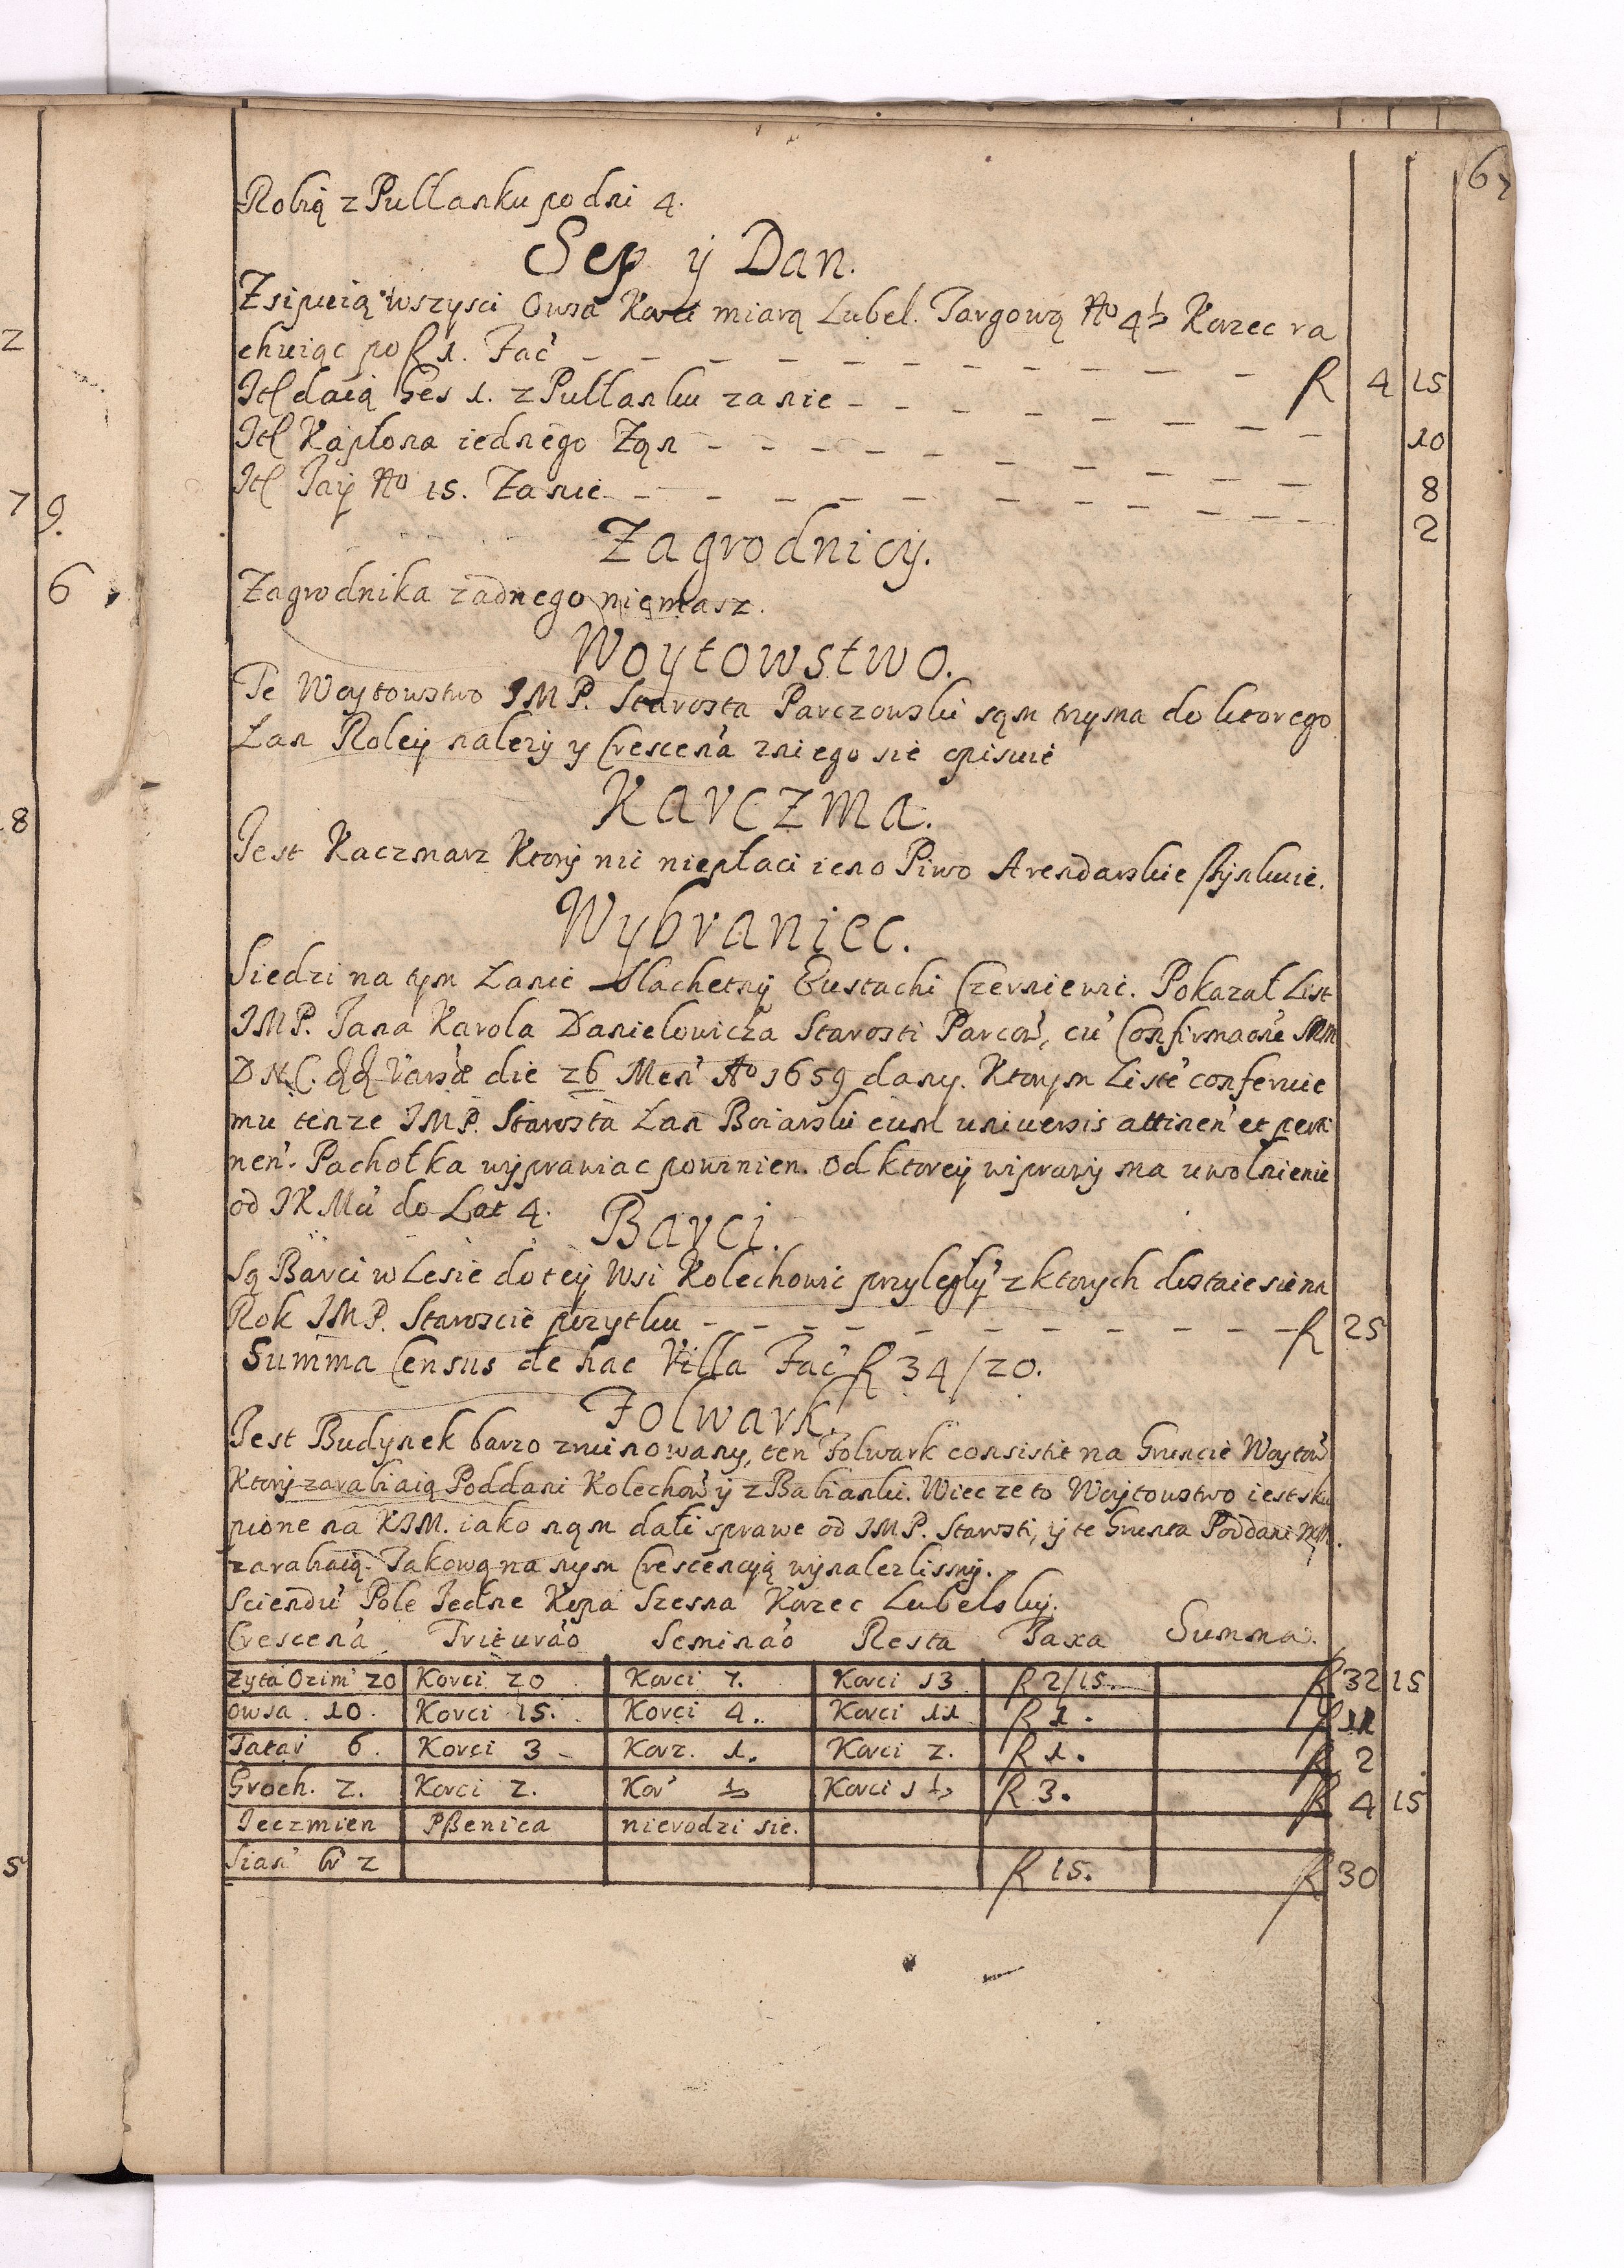 67
Robią z Pułlanku po dni 4.
Sep y Dan.
Zsipuią wszysci Owsa Korci miarą Lubel. Targową No 4½ Korzec ra
chuiąc po fl 1. Fac̃ — — — fl 4 15
Itl daią Gęs 1. z Pułlanku za nie — — — 10
Itl Kapłona iednego Zą n — — — 8
Itl Iaÿ No 15. Za nie — — — 2
Zagrodnicÿ.
Zagrodnika zadnego niemasz.
Woytowstwo.
Te Woytowstwo IMP. Starosta Parczowski sąm trzyma do ktorego
Łan Roleÿ nalezÿ y Crescen̕a zniego sie opisuie
Karczma.
Iest Kaczmarz Ktorÿ nic niepłaci ieno Piwo Arendarskie szynkuie.
Wybraniec.
Siedzi na tym Łanie Slachetnÿ Eustachi Czerniewic. Pokazał List
IMP. Iana Karola Danielowicza Starosti Parcow̕, cu̕ Confirmaone SRM
DNC. Varsæ die 26 Men̕ Ao 1659 dany. Ktorym Liste̕ conferuie
mu tenze IMP. Starosta Łan Boiarski cum uniuersis attinen̕ et perti
nen̕. Pachołka wÿprawiac powinien. Od ktoreÿ wiprawÿ ma uwolnienie
od IKMci do Lat 4.
Barci.
Są Barci w Lesie do teÿ Wsi Kolechowic przyległÿ z ktorych dostaie sie na
Rok IMP. Staroscie pozytku — — — fl 25
Summa Census de hac Villa Fac̃ fl 34/20.
Folwark.
Iest Budynek barzo zruinowany, ten Folwark consistit na Gruncie Woytow̕
Ktorÿ zarabiaią Poddani Kolechow̕ ÿ z Babianki. Wiec ze to Woÿtowstwo iest sku
pione na KIM. iako nąm dali sprawe od IMP. Starosti, ÿ te Grunta Poddani
zarabiaią. Takową na nym Crescencÿą wÿnalezlismÿ.
Sciendu̕ Pole Iedne Kopa Szesna Korzec Lubelskÿ.
Crescen̕a Tritura̕o Semina̕o Resta Taxa Summa.
Zyta Ozim̕ 20 Korci 20 Korci 7. Korci 13 fl 2/15. fl 32 15
Owsa. 10. Korci 15. Korci 4. Korci 11 fl 1. fl 11
Tatar̕ 6. Korci 3 Korz. 1. Korci 2. fl 1. fl 2
Groch. 2. Korci 2. Kor̕ ½ Korci 1½ fl 3. fl 4 15
Ieczmien Pßenica nierodzi sie.
Sian̕ 2 fl 15. fl 30